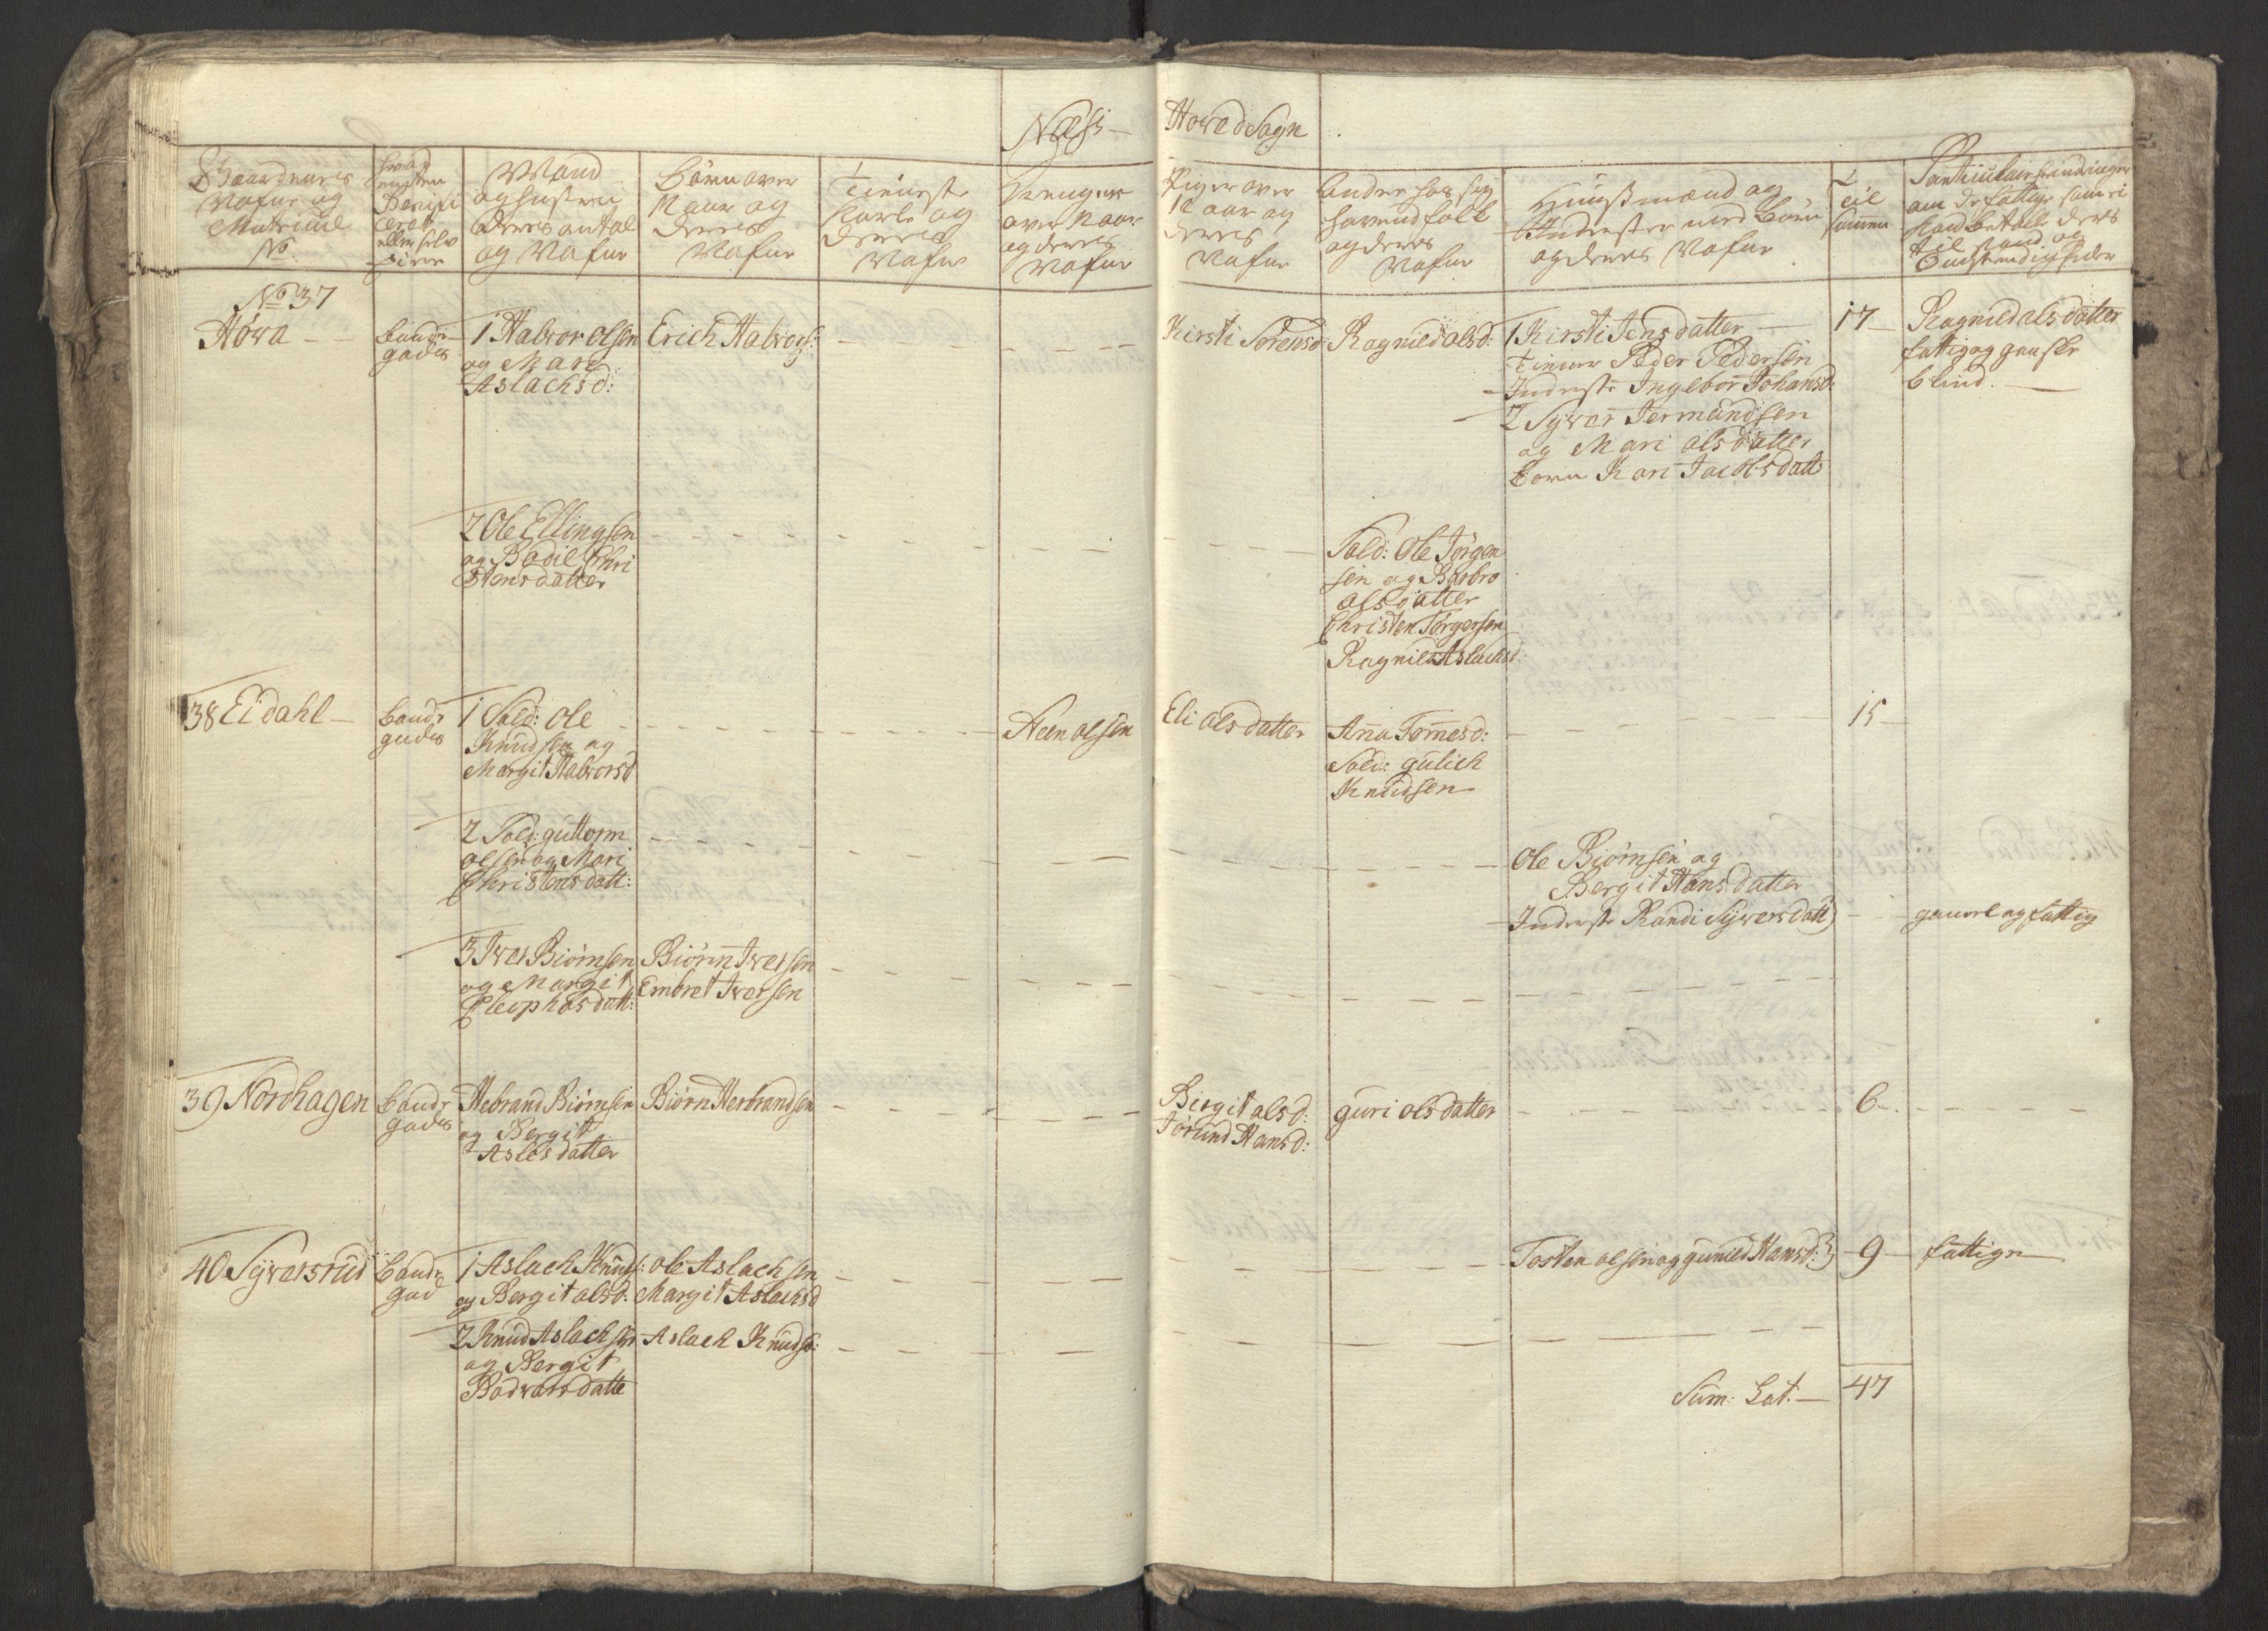 Næss — Hoved Sogn
Gaardenes
Nafne og
Matricul
No
Mand
og Hustru
deres antal
og Nafne
Börn over
12 aar og
deres
Nafne
Tieniste
Karle og
deres
Nafne
Drenger
over 12 aar
og deres
Nafne
Piger over
12 aar og
deres
Nafne
andre hos sig
havende folk
og deres
Nafne
Huusmænd og
Inderster med Börn
og deres Nafne
Til
sammen
om de fattige
No 37
Höva — —
Bonde
gods
1 Halvor Olsen
og Mari
Aslachsd:
Erich Halvors:
Kirsti Sörensd:
Ragnild Olsd:
1 Kirsti Jensdatter —
Tiener Peder Pedersen
Inderste Ingebor Johansd:
2 Syver Jermundsen
og Mari Olsdatter
Born Kari Jacobsdatt
17
Ragnild Olsdatter
fattig og ganske
blind. —
2 Ole Ellingsen
og Bodil Chri
stensdatter
Sold: Ole Törgen
sen og Barbro
Olsdatter
Christen Törgersen
Ragnild Aslachsd
38 Eidahl —
Bonde
gods
1 Sold: Ole
Knudsen og
Margit Halvorsd
Aen Olsen
Eli Olsdatter
Anna Tomesd:
Sold: gulich
Knudsen
15
2 Sold: guttorm
Olsen og Mari
Christensdatt:
Ole Biörnsen og
Bergit Hansdatter
Inderste Randi Syversdatt
gammel og fattig
3 Iver Biörnsen
og Margit
Cleophasdatt:
Biörn Iversen
Embret Iversen
39 Nordhagen
Bonde
gods
Hebrand Biörnsen
og Bergit
Aslesdatter
Biörn Herbrandsen
Birgit Olsd:
Jörund Hansd:
guri Olsdatter
6
40 Syversrud
Bonde
god
1 Aslach Knuds:
og Bergit Olsd:
Ole Aslachsen
Margit Aslachsd
Tosten Olsen og gunild Hansd:
9
fattige
2 Knud Aslachsen
og Bergit
Bodvarsdatte
Aslach Knuds:
Sum: Lat: — 47